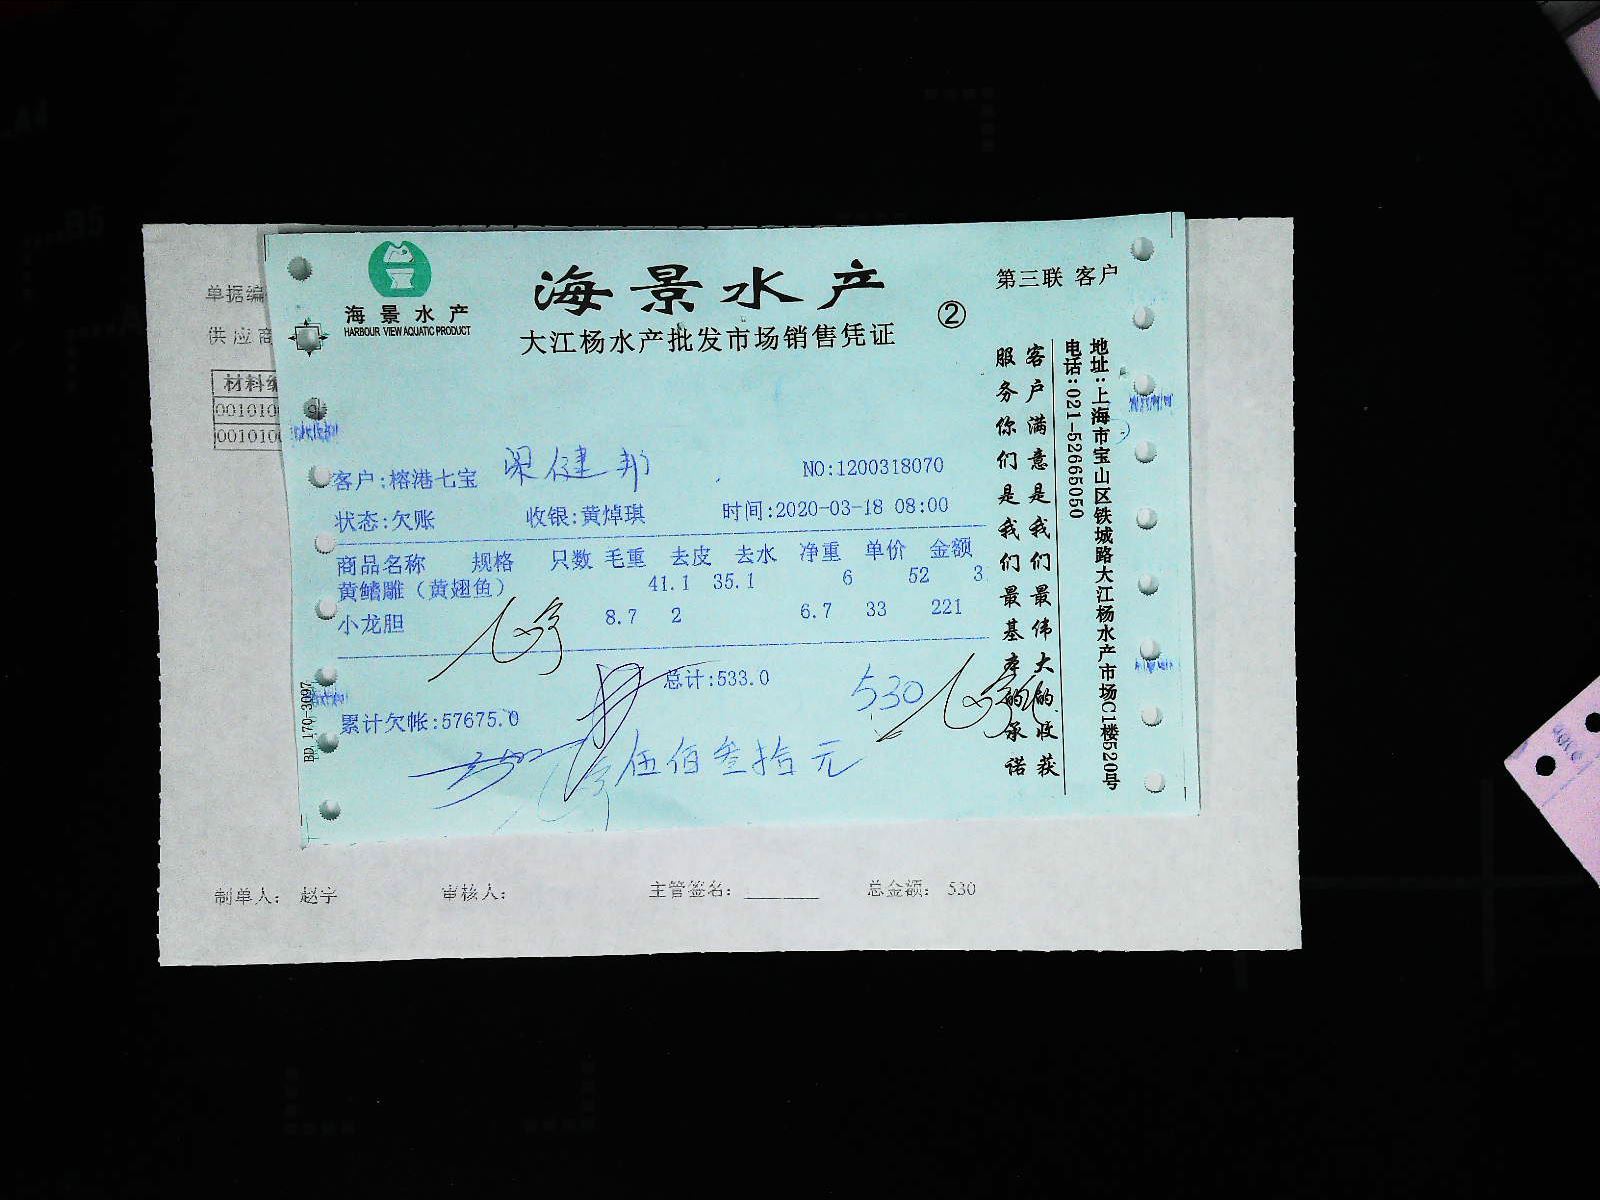 海景水产
HARBOUR VIEW AQUATIC PRODUCT
海景水产
大江杨水产批发市场销售凭证
②
第三联 客户
单据编
供应商
材料编
001010
0010100
客户:榕港七宝 梁健邦
NO:1200318070
状态:欠账 收银:黄焯琪 时间:2020-03-18 08:00
商品名称 规格 只数 毛重 去皮 去水 净重 单价 金额
黄鳍雕（黄翅鱼） 41.1 35.1 6 52 3
小龙胆 8.7 2 6.7 33 221
总计:533.0
530
累计欠帐:57675.0
伍佰叁拾元
BD 170-3097
地址:上海市宝山区铁城路大江杨水产市场C1楼520号
电话:021-52665050
客户满意是我们最伟大的收获
服务你们是我们最基本的承诺
制单人: 赵宇 审核人: 主管签名: 总金额: 530